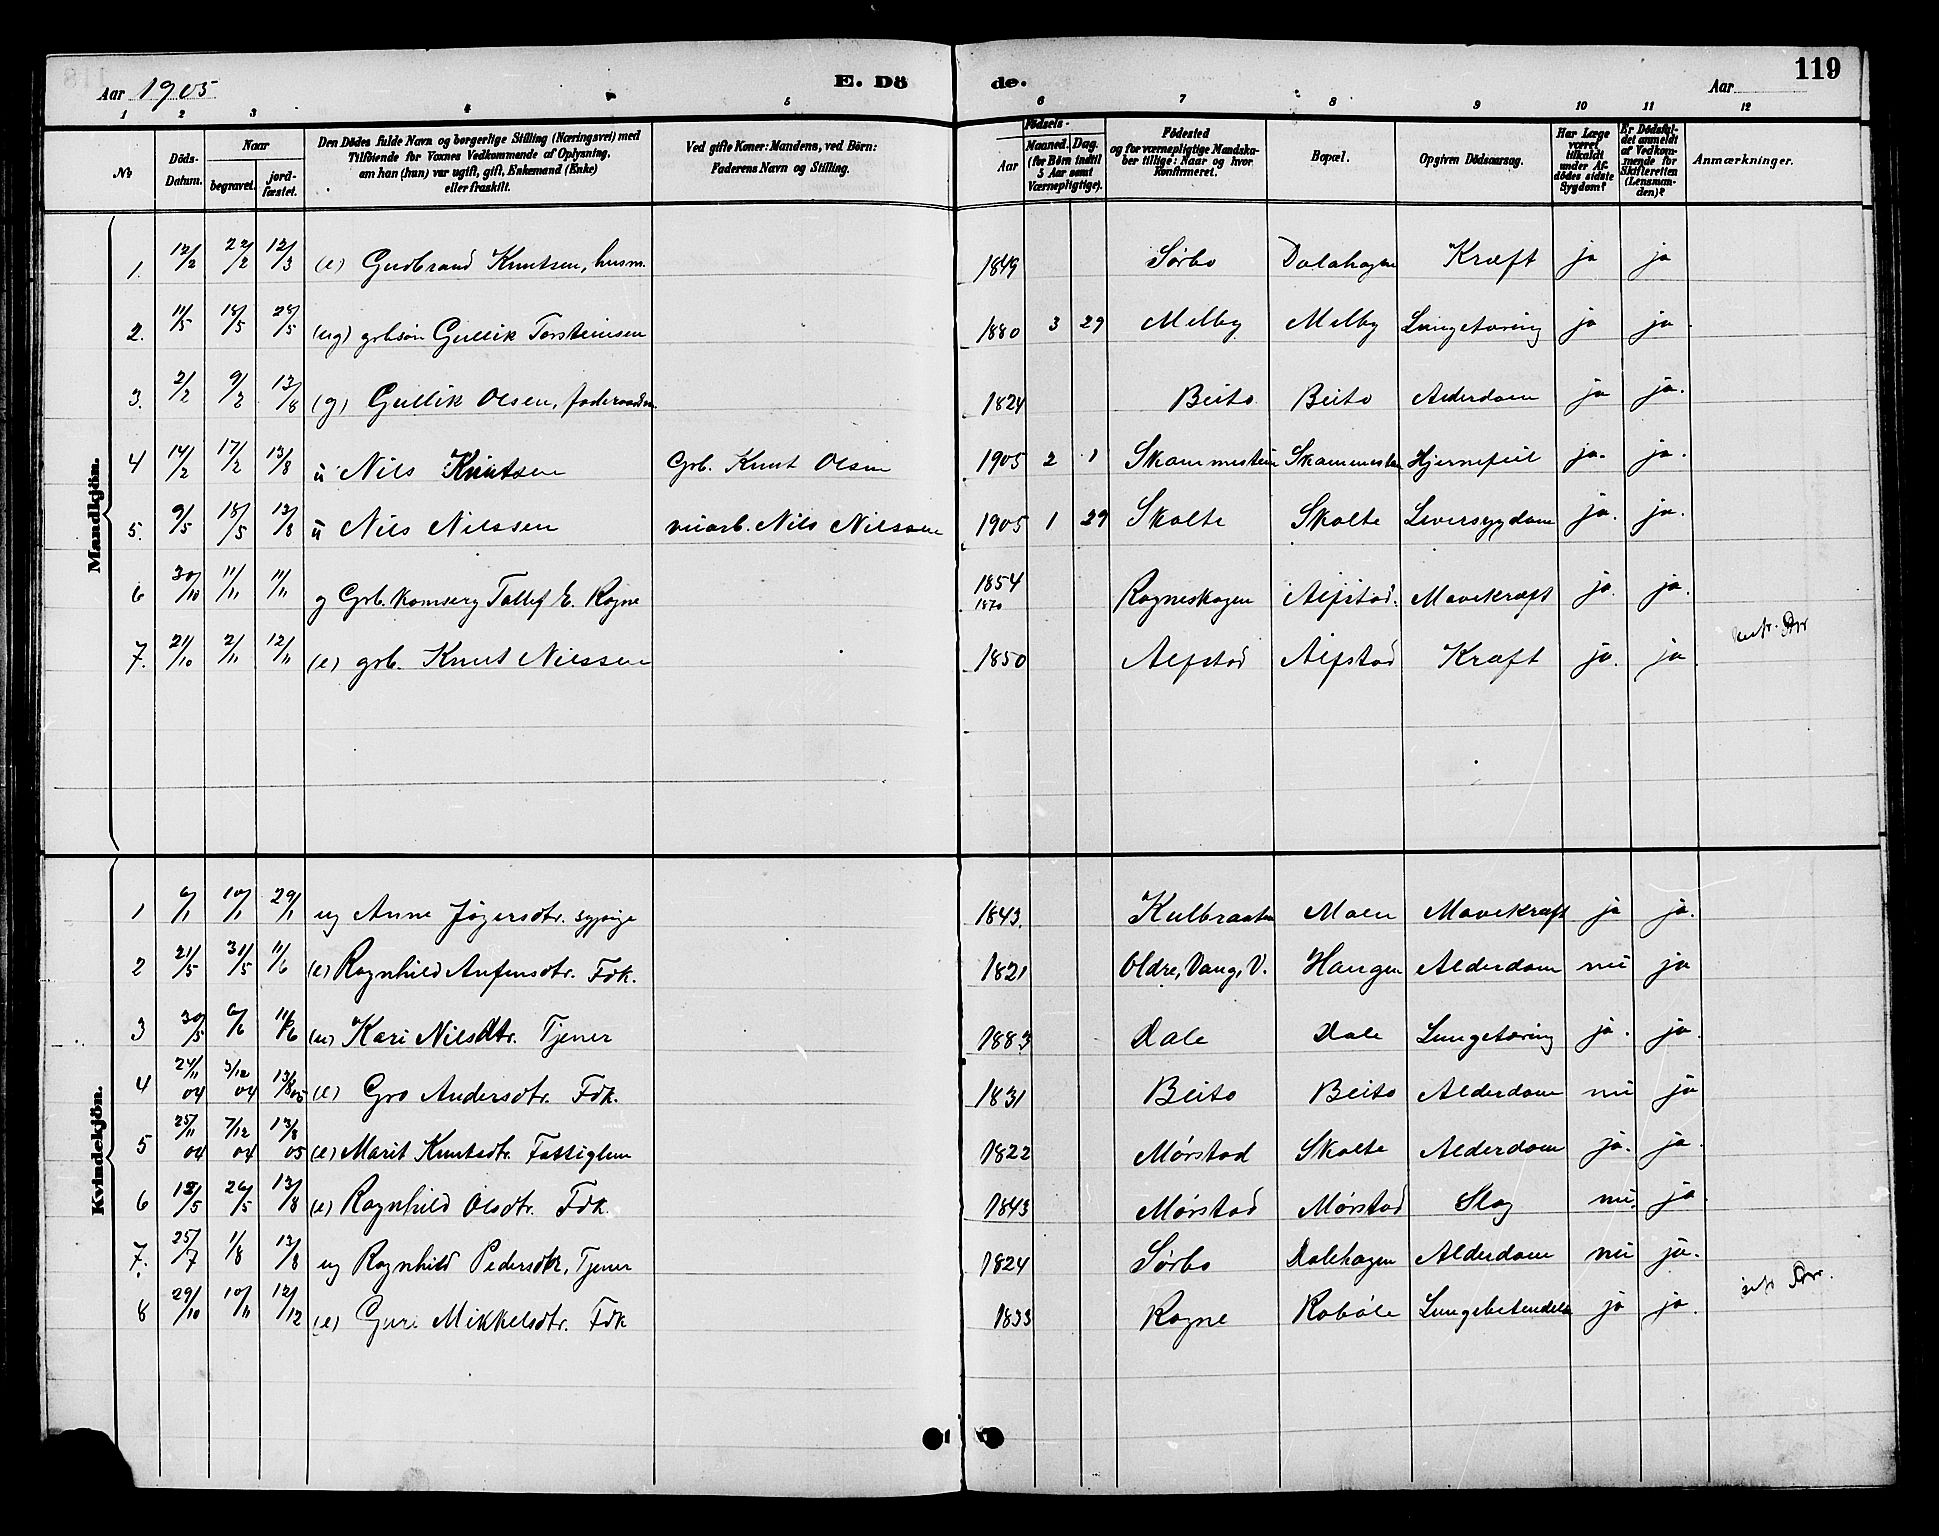 Aar 1905 E. Dö de. Aar 119
1 2 3 4 5 6 7 8 9 10 11 12
No
Döds-Datum.
Naar
begravet.
jordfæstet.
Den Dödes fulde Navn og borgerlige Stilling (Næringsvei) med
Tilföiende for Voxnes Vedkommende af Oplysning,
om han (hun) var ugift, gift, Enkemand (Enke)
eller fraskilt.
Ved gifte Koner: Mandens, ved Börn:
Faderens Navn og Stilling.
Födsels-
Aar
Maaned. Dag.
(for Börn indtil
5 Aar samt
Værnepligtige).
Födested
og for værnepligtige Mandskaber tillige: Naar og hvor
konfirmeret.
Bopæl.
Opgiven Dödsaarsag.
Har Læge
været
tilkaldt
under Afdödes sidste
Sygdom?
Er Dödsfaldet anmeldt
af Vedkommende for
Skifteretten
(Lensmanden)?
Anmærkninger.
Mandkjön.
1. 12/2 22/2 12/3 (e) Gudbrand Knutsen, husm. 1849 Sørbo Dalahagen Kræft ja ja
2. 11/5 18/5 28/5 (ug) grbsøn Gullik Torsteinsen 1880 3 29 Melby Melby Lungetæring ja ja
3. 2/2 9/2 13/8 (g) Gullik Olsen, foderaadsm 1824 Beito Beito Alderdom ja ja.
4 14/2 17/2 13/8 u Nils Knutsen Grb. Knut Olsen 1905 2 1 Skammestein Skammestein Hjernefeil ja. ja.
5. 9/5 18/5 13/8 u Nils Nilssen Nils Nilssen 1905 1 29 Skolte Skolte Leversygdom ja. ja.
6 30/10 11/11 11/11 g Grb. Tollef E. Rogne 1854 1870 Rogneskogen Alfstad. Mavekræft ja. ja.
7. 21/10 2/11 12/11 (e) grb. Knut Nilssen 1850 Alfstad Alfstad Kræft ja. ja
Kvindekjön.
1 6/1 10/1 29/1 ug Anne Jøgersdtr. sypige 1843. Kulbraaten Moen Mavekræft ja ja.
2 21/5 31/5 11/6 (e) Ragnhild Anfinsdtr. Fdk. 1821 Oldre, Vang, V. Haugen Alderdom nei ja
3 30/5 6/6 11/6 (u) Kari Nilsdtr. Tjener 1883 Dale Dale Lungetæring ja. ja.
4 24/11 04 3/12 04 13/8 05 (e) Gro Andersdtr. Fdk. 1831 Beito Beito Alderdom nei ja
5 25/11 04 7/12 04 13/8 05 (e) Marit Knutsdtr. Fattiglem 1822 Mørstad Skolte Alderdom ja. ja.
6 18/5 26/5 13/8 (e) Ragnhild Olsdtr. Fdk. 1843 Mørstad Mørstad Slag nei. ja
7. 25/7 1/8 13/8 ug Ragnhild Pedersdtr. Tjener 1824 Sørbo Dalehagen Alderdom nei ja.
8 29/10 10/11 12/12 (e) Guri Mikkelsdtr. Fdk 1833 Rogne Robøle Lungebetendelse ja ja.